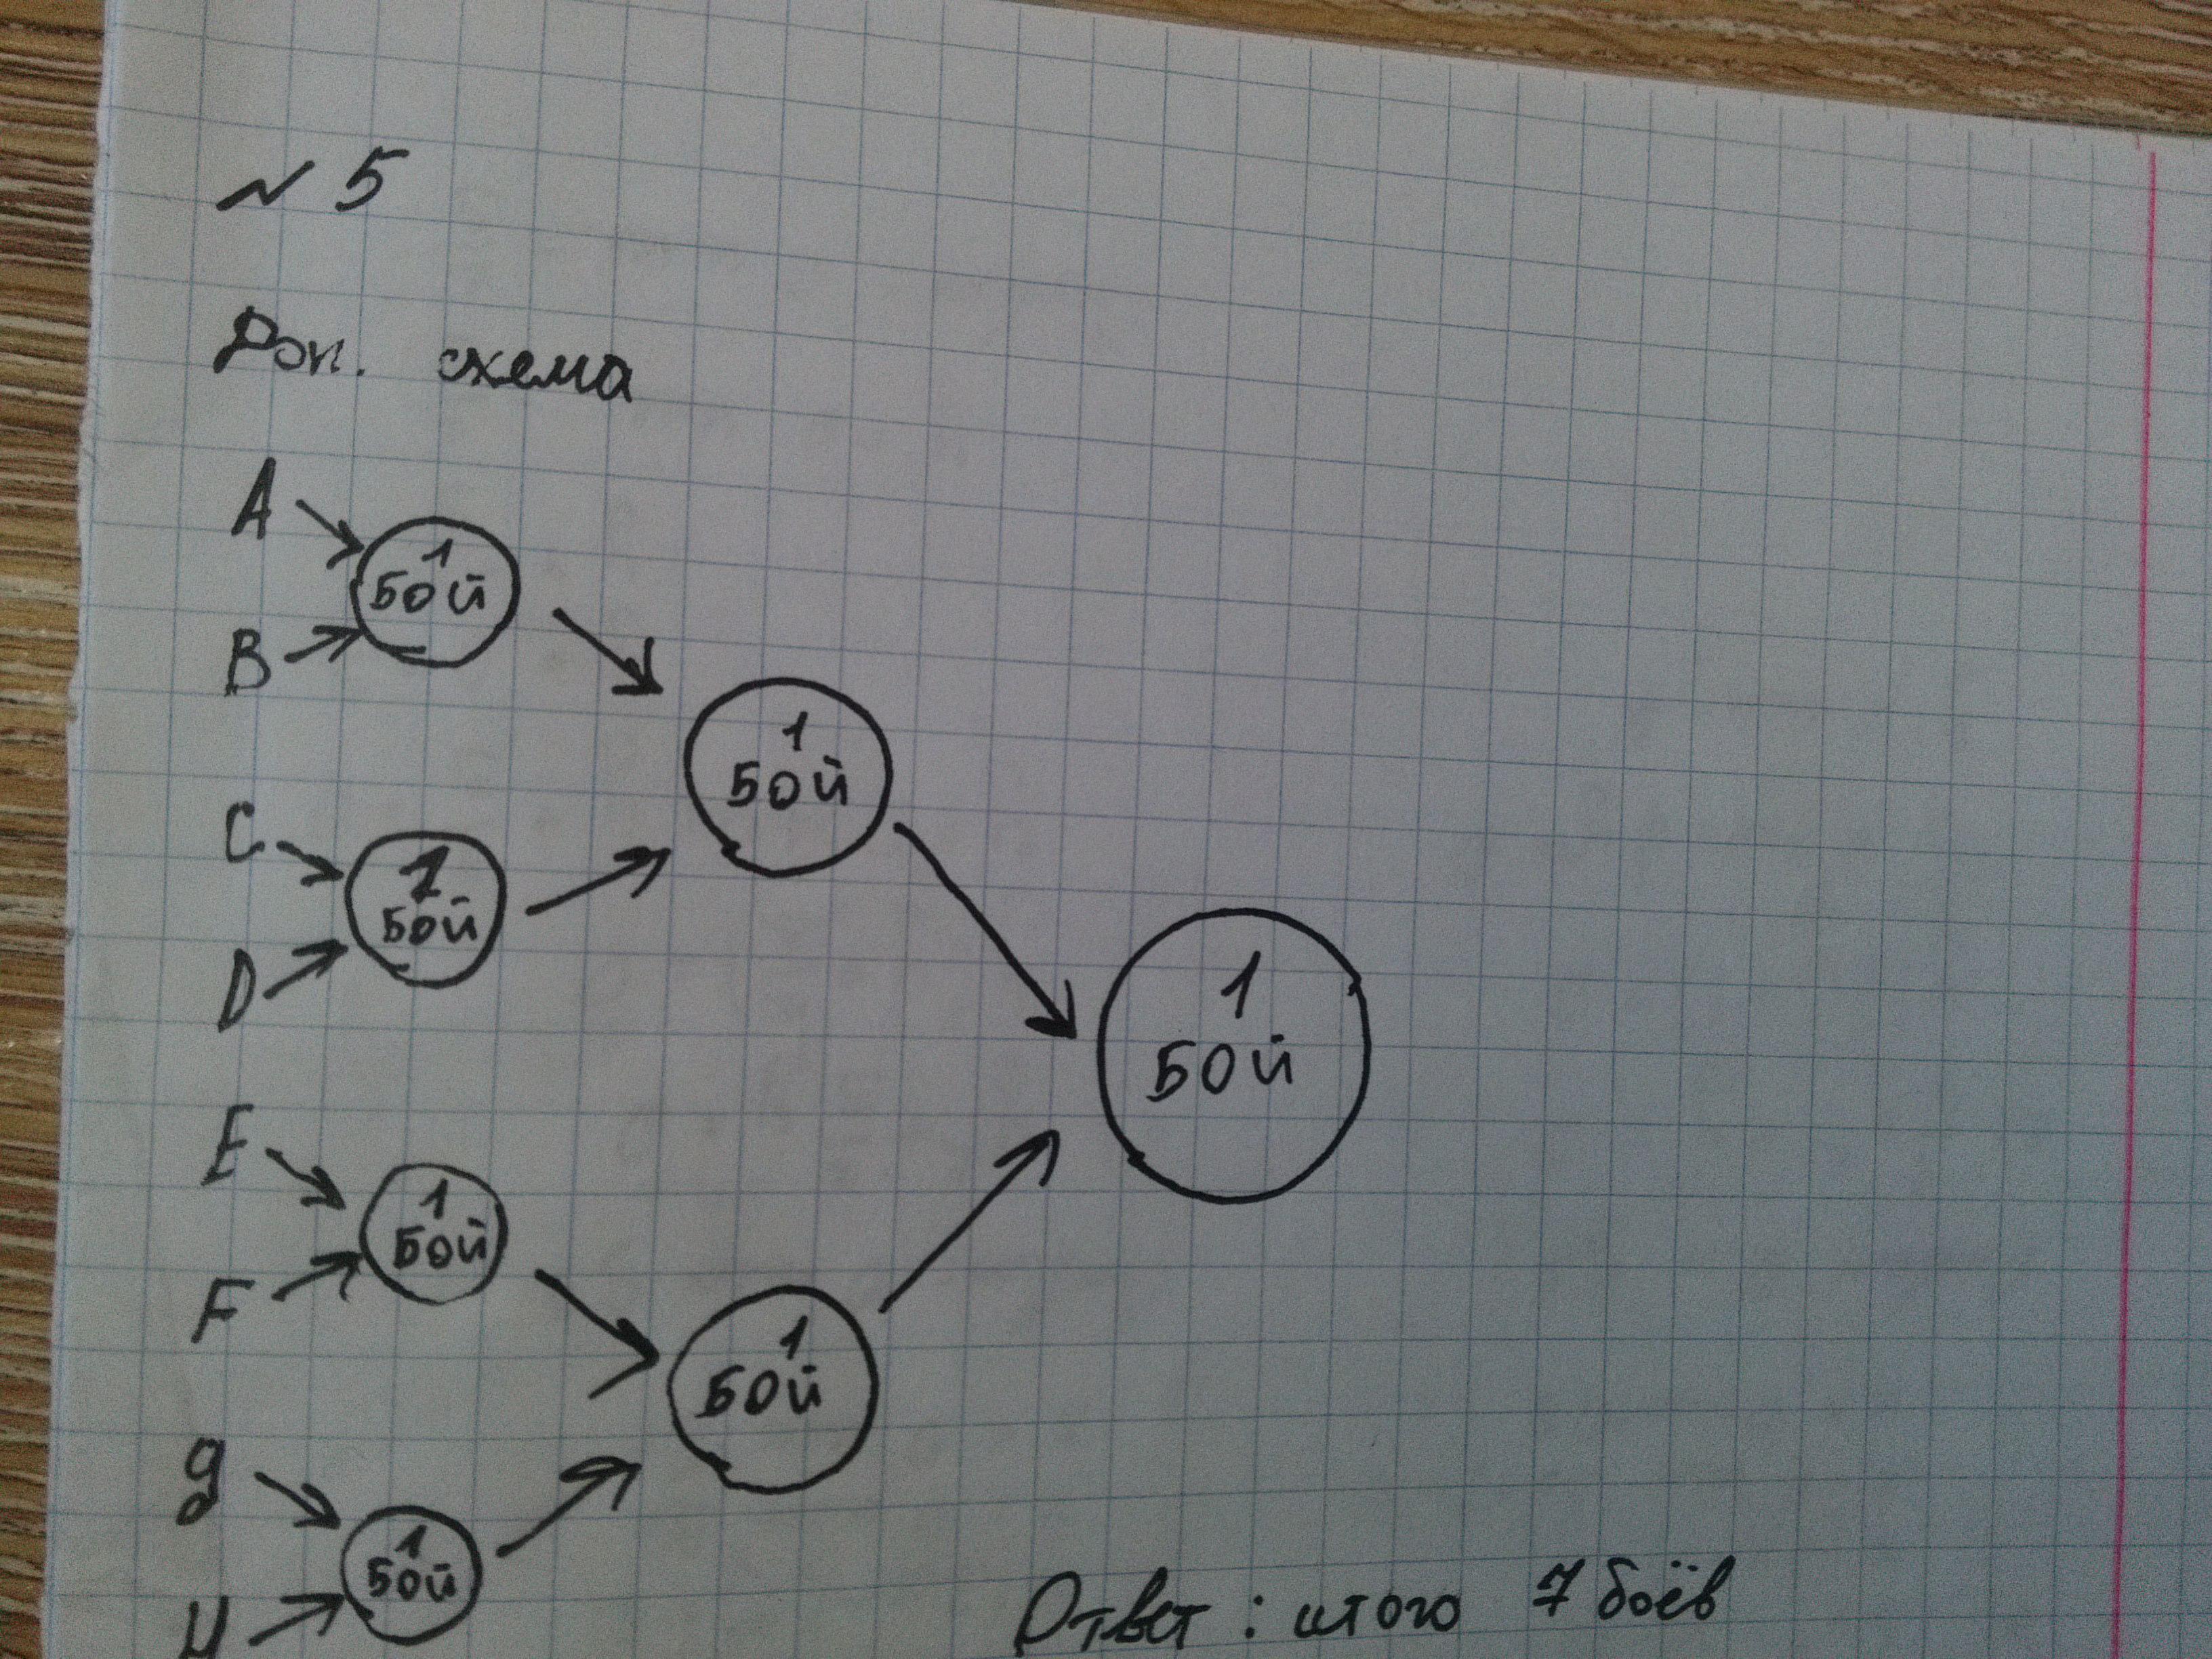 № 5
Доп. схема
A
1
БОЙ
B
1
БОЙ
C
1
БОЙ
D
1
БОЙ
E
1
БОЙ
F
1
БОЙ
g
1
БОЙ
H
Ответ: итого 7 боёв